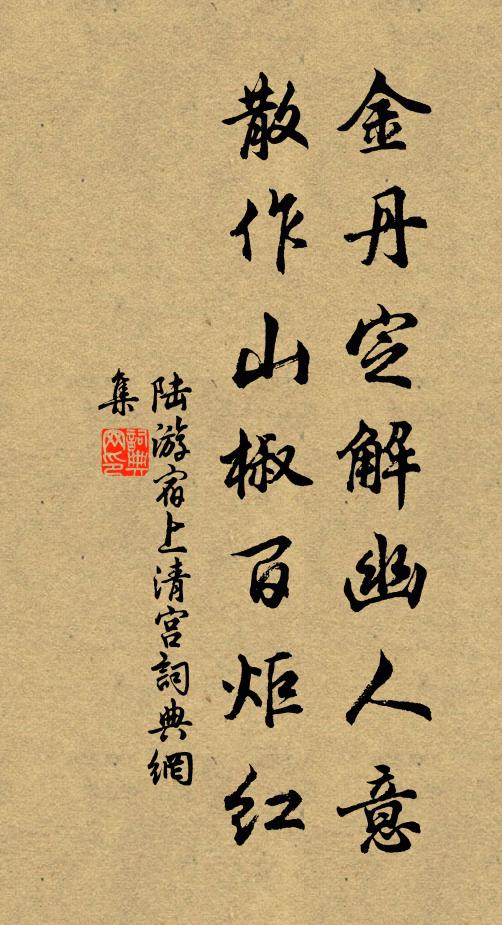 金丹定解幽人意
散作山椒百炬红
陆游宿上清宫詞典網
集
詞典網印